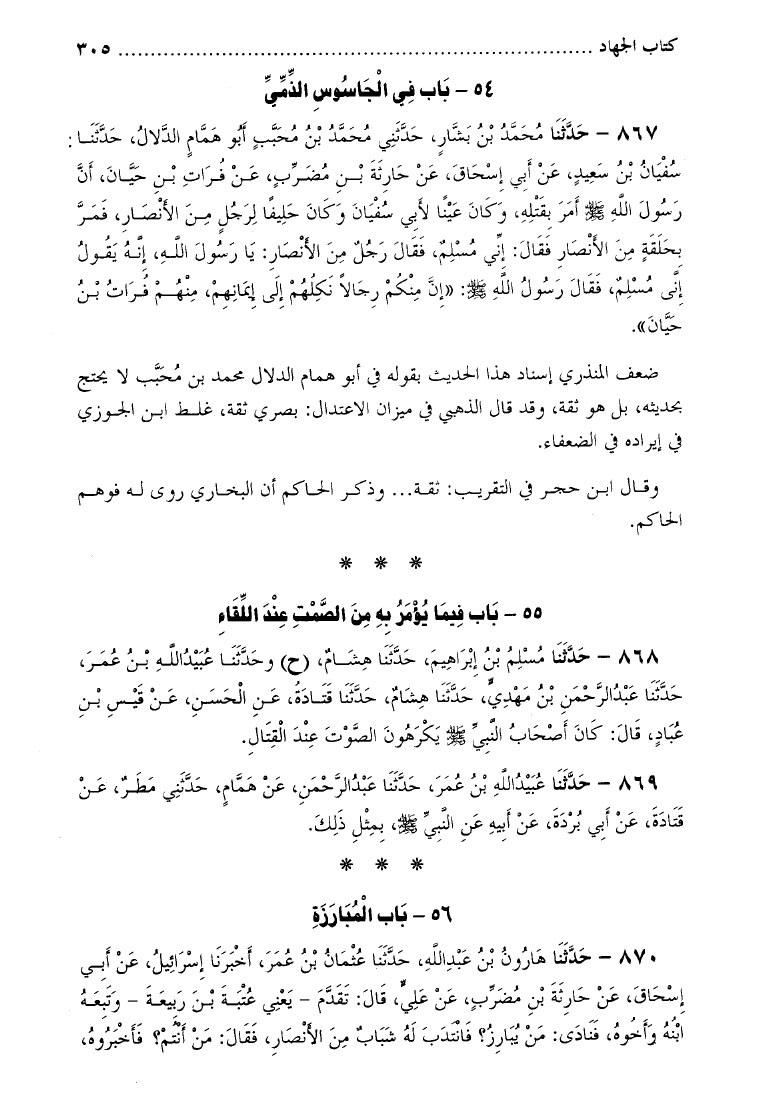 كتاب الجهاد ................................................................ ٣٠٥
٥٤ – بَاب فِي الْجَاسُوسِ الذِّمِّيِّ
٨٦٧ – حَدَّثَنَا مُحَمَّدُ بْنُ بَشَّارٍ، حَدَّثَنِي مُحَمَّدُ بْنُ مُحَبَّبٍ أَبُو هَمَّامٍ الدَّلالُ، حَدَّثَنَا:
سُفْيَانُ بْنُ سَعِيدٍ، عَنْ أَبِي إِسْحَاقَ، عَنْ حَارِثَةَ بْنِ مُضَرِّبٍ، عَنْ فُرَاتِ بْنِ حَيَّانَ، أَنَّ
رَسُولَ اللَّهِ ﷺ أَمَرَ بِقَتْلِهِ، وَكَانَ عَيْنًا لأَبِي سُفْيَانَ وَكَانَ حَلِيفًا لِرَجُلٍ مِنَ الأَنْصَارِ، فَمَرَّ
بِحَلَقَةٍ مِنَ الأَنْصَارِ فَقَالَ: إِنِّي مُسْلِمٌ، فَقَالَ رَجُلٌ مِنَ الأَنْصَارِ: يَا رَسُولَ اللَّهِ، إِنَّهُ يَقُولُ
إِنِّى مُسْلِمٌ، فَقَالَ رَسُولُ اللَّهِ ﷺ: «إِنَّ مِنْكُمْ رِجَالاً نَكِلُهُمْ إِلَى إِيمَانِهِمْ، مِنْهُمْ فُرَاتُ بْنُ
حَيَّانَ».
ضعف المنذري إسناد هذا الحديث بقوله في أبو همام الدلال محمد بن مُحَبَّب لا يحتج
بحديثه، بل هو ثقة، وقد قال الذهبي في ميزان الاعتدال: بصري ثقة، غلط ابن الجوزي
في إيراده في الضعفاء.
وقال ابن حجر في التقريب: ثقة... وذكر الحاكم أن البخاري روى له فوهم
الحاكم.
* * *
٥٥ – بَاب فِيمَا يُؤْمَرُ بِهِ مِنَ الصَّمْتِ عِنْدَ اللِّقَاءِ
٨٦٨ – حَدَّثَنَا مُسْلِمُ بْنُ إِبْرَاهِيمَ، حَدَّثَنَا هِشَامٌ، (ح) وحَدَّثَنَا عُبَيْدُاللَّهِ بْنُ عُمَرَ،
حَدَّثَنَا عَبْدُالرَّحْمَنِ بْنُ مَهْدِيٍّ، حَدَّثَنَا هِشَامٌ، حَدَّثَنَا قَتَادَةُ، عَنِ الْحَسَنِ، عَنْ قَيْسِ بْنِ
عُبَادٍ، قَالَ: كَانَ أَصْحَابُ النَّبِيِّ ﷺ يَكْرَهُونَ الصَّوْتَ عِنْدَ الْقِتَالِ.
٨٦٩ – حَدَّثَنَا عُبَيْدُاللَّهِ بْنُ عُمَرَ، حَدَّثَنَا عَبْدُالرَّحْمَنِ، عَنْ هَمَّامٍ، حَدَّثَنِي مَطَرٌ، عَنْ
قَتَادَةَ، عَنْ أَبِي بُرْدَةَ، عَنْ أَبِيهِ عَنِ النَّبِيِّ ﷺ، بِمِثْلِ ذَلِكَ.
* * *
٥٦ – بَاب الْمُبَارَزَةِ
٨٧٠ – حَدَّثَنَا هَارُونُ بْنُ عَبْدِاللَّهِ، حَدَّثَنَا عُثْمَانُ بْنُ عُمَرَ، أَخْبَرَنَا إِسْرَائِيلُ، عَنْ أَبِي
إِسْحَاقَ، عَنْ حَارِثَةَ بْنِ مُضَرِّبٍ، عَنْ عَلِيٍّ، قَالَ: تَقَدَّمَ – يَعْنِي عُتْبَةَ بْنَ رَبِيعَةَ – وَتَبِعَهُ
ابْنُهُ وَأَخُوهُ، فَنَادَى: مَنْ يُبَارِزُ؟ فَانْتَدَبَ لَهُ شَبَابٌ مِنَ الأَنْصَارِ، فَقَالَ: مَنْ أَنْتُمْ؟ فَأَخْبَرُوهُ،